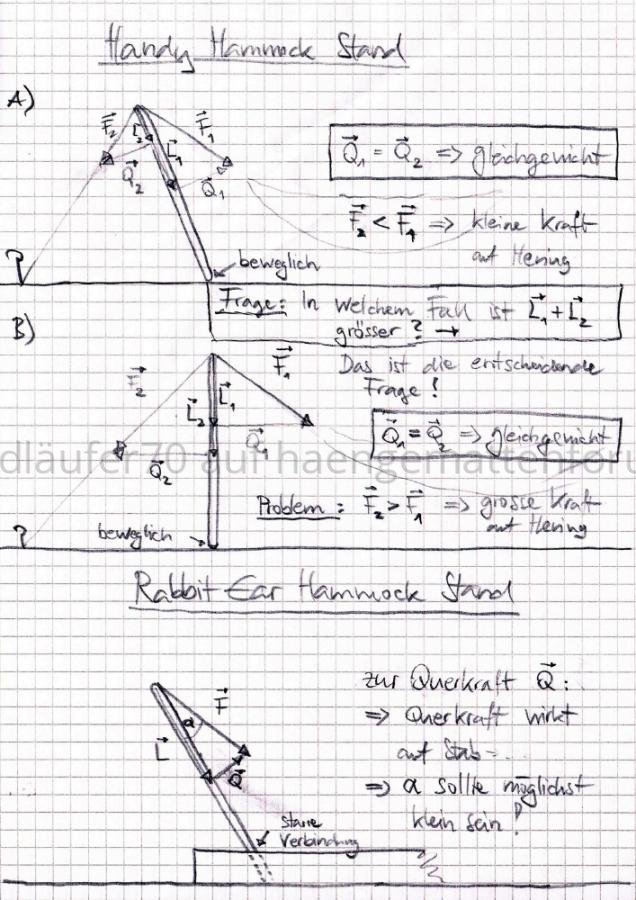 Handy Hammock Stand
A)
F₂ L₂ L₁ F₁
Q₂ Q₁
Q₁ = Q₂ => gleichgewicht
F₂ < F₁ => kleine Kraft
auf Hering
beweglich
Frage: In welchem Fall ist L₁ + L₂
grösser? →
B)
Das ist die entscheidende
Frage!
F₂ L₂ L₁ F₁
Q₂ Q₁
Q₁ = Q₂ => gleichgewicht
dläufer70 auf haengemattenforu
Problem: F₂ > F₁ => grosse Kraft
auf Hering
beweglich
Rabbit Ear Hammock Stand
L α F
Q
starre
Verbindung
zur Querkraft Q:
=> Querkraft wirkt
auf Stab
=> α sollte möglichst
klein sein!